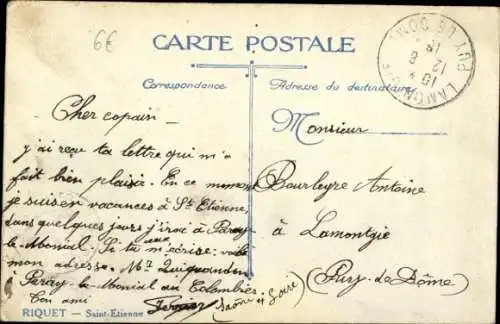 6€
CARTE POSTALE
PUY DE DOME
Correspondance
Adresse du destinataire
Cher copain -
j'ai reçu ta lettre qui m'a
fait bien plaisir. En ce moment
je suis en vacances à St Etienne,
dans quelques jours j'irai à Paray
le-Monial. Si tu veux m'écrire, voilà
mon adresse. Mr
à Paray-le-Monial au Colombier
Ton ami
(Saône et Loire)
Monsieur
Bourleyre Antoine
à Lamontgie
(Puy-de-Dôme)
RIQUET — Saint-Étienne